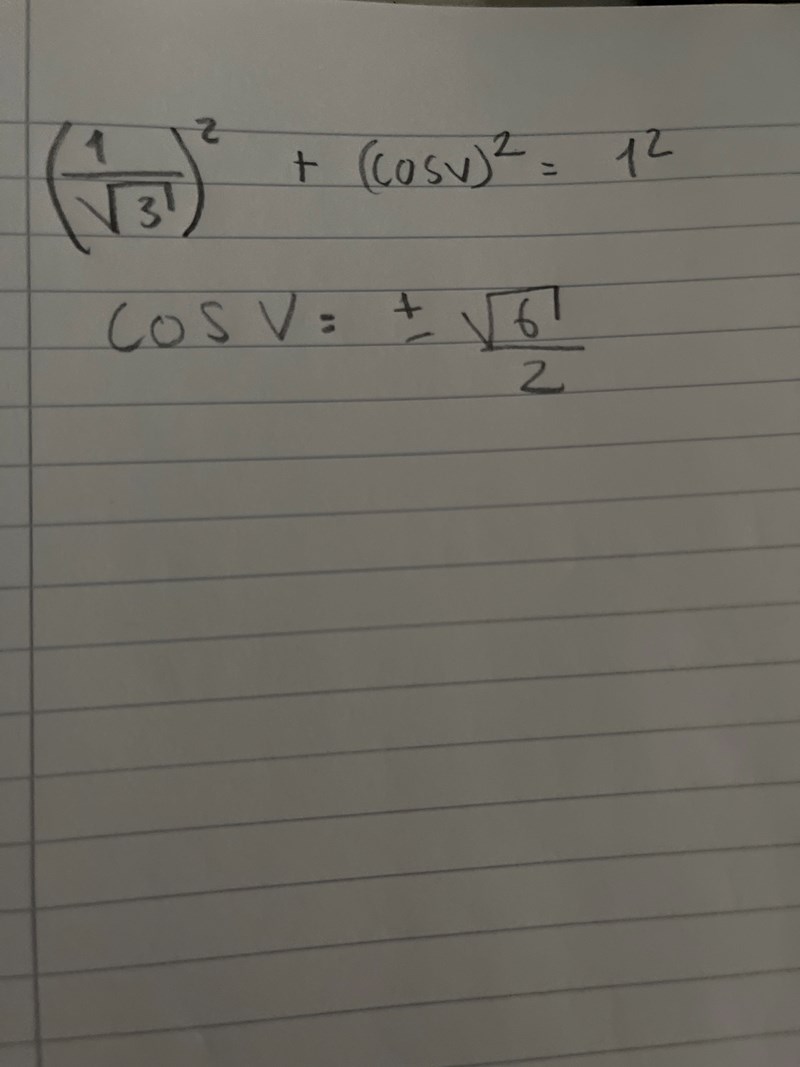 (1/√3)² + (cos v)² = 1²
cos v = ± √6/2